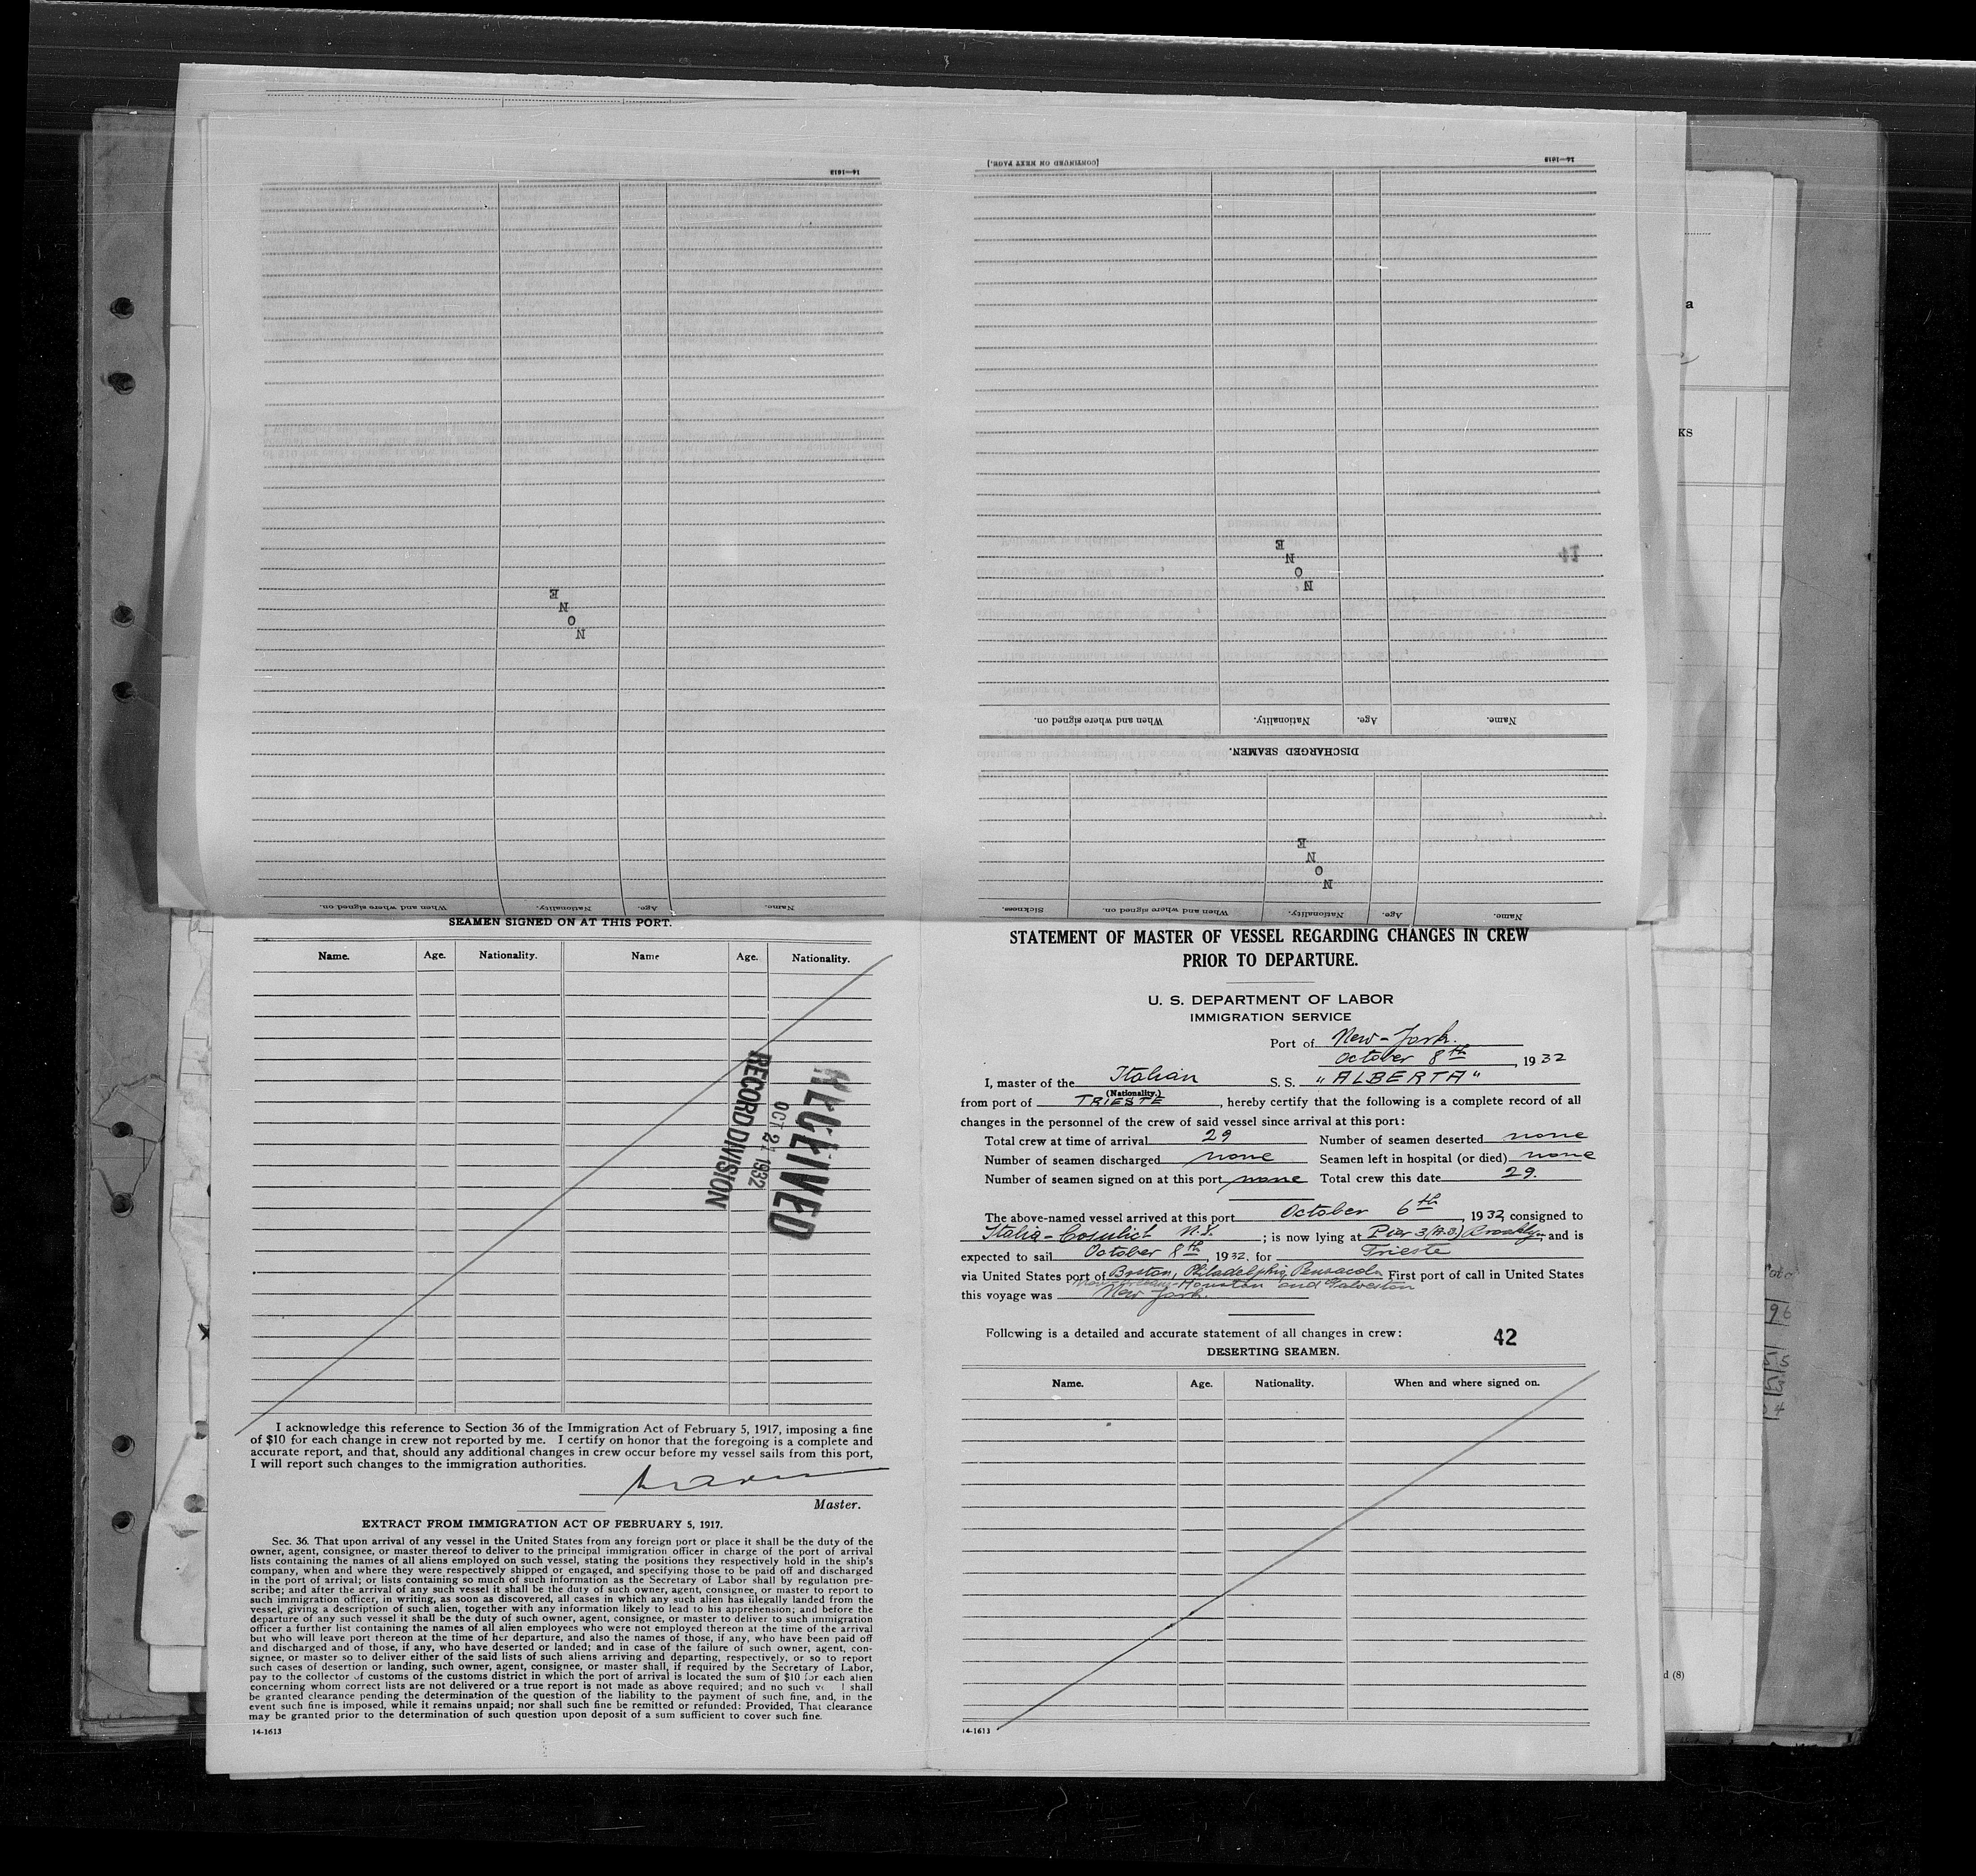 [CONTINUED ON NEXT PAGE.]
14—1613
14—1613
N
O
N
E
N
O
N
E
Name. Age. Nationality. When and where signed on.
DISCHARGED SEAMEN.
N
O
N
E
Name. Age. Nationality. When and where signed on.
Name. Age. Nationality. When and where signed on. Sickness.
SEAMEN SIGNED ON AT THIS PORT.
Name. Age. Nationality. Name Age. Nationality.
RECEIVED
OCT 21 1932
RECORD DIVISION
I acknowledge this reference to Section 36 of the Immigration Act of February 5, 1917, imposing a fine
of $10 for each change in crew not reported by me. I certify on honor that the foregoing is a complete and
accurate report, and that, should any additional changes in crew occur before my vessel sails from this port,
I will report such changes to the immigration authorities.
Master.
EXTRACT FROM IMMIGRATION ACT OF FEBRUARY 5, 1917.
Sec. 36. That upon arrival of any vessel in the United States from any foreign port or place it shall be the duty of the
owner, agent, consignee, or master thereof to deliver to the principal immigration officer in charge of the port of arrival
lists containing the names of all aliens employed on such vessel, stating the positions they respectively hold in the ship's
company, when and where they were respectively shipped or engaged, and specifying those to be paid off and discharged
in the port of arrival; or lists containing so much of such information as the Secretary of Labor shall by regulation pre-
scribe; and after the arrival of any such vessel it shall be the duty of such owner, agent, consignee, or master to report to
such immigration officer, in writing, as soon as discovered, all cases in which any such alien has illegally landed from the
vessel, giving a description of such alien, together with any information likely to lead to his apprehension; and before the
departure of any such vessel it shall be the duty of such owner, agent, consignee, or master to deliver to such immigration
officer a further list containing the names of all alien employees who were not employed thereon at the time of the arrival
but who will leave port thereon at the time of her departure, and also the names of those, if any, who have been paid off
and discharged and of those, if any, who have deserted or landed; and in case of the failure of such owner, agent, con-
signee, or master so to deliver either of the said lists of such aliens arriving and departing, respectively, or so to report
such cases of desertion or landing, such owner, agent, consignee, or master shall, if required by the Secretary of Labor,
pay to the collector of customs of the customs district in which the port of arrival is located the sum of $10 for each alien
concerning whom correct lists are not delivered or a true report is not made as above required; and no such ve l shall
be granted clearance pending the determination of the question of the liability to the payment of such fine, and, in the
event such fine is imposed, while it remains unpaid; nor shall such fine be remitted or refunded: Provided, That clearance
may be granted prior to the determination of such question upon deposit of a sum sufficient to cover such fine.
14-1613
STATEMENT OF MASTER OF VESSEL REGARDING CHANGES IN CREW
PRIOR TO DEPARTURE.
U. S. DEPARTMENT OF LABOR
IMMIGRATION SERVICE
Port of New-York.
October 8th, 1932
I, master of the Italian S. S. "ALBERTA"
(Nationality.)
from port of TRIESTE, hereby certify that the following is a complete record of all
changes in the personnel of the crew of said vessel since arrival at this port:
Total crew at time of arrival 29 Number of seamen deserted none
Number of seamen discharged none Seamen left in hospital (or died) none
Number of seamen signed on at this port none Total crew this date 29.
The above-named vessel arrived at this port October 6th, 1932, consigned to
Italia-Cosulich ; is now lying at Pier 3 Brooklyn, and is
expected to sail October 8th, 1932, for Trieste
via United States port of Boston, Philadelphia, Pensacola First port of call in United States
New Orleans - Houston and Galveston
this voyage was New York.
Following is a detailed and accurate statement of all changes in crew:
42
DESERTING SEAMEN.
Name. Age. Nationality. When and where signed on.
14-1613
a
KS
96
d (8)